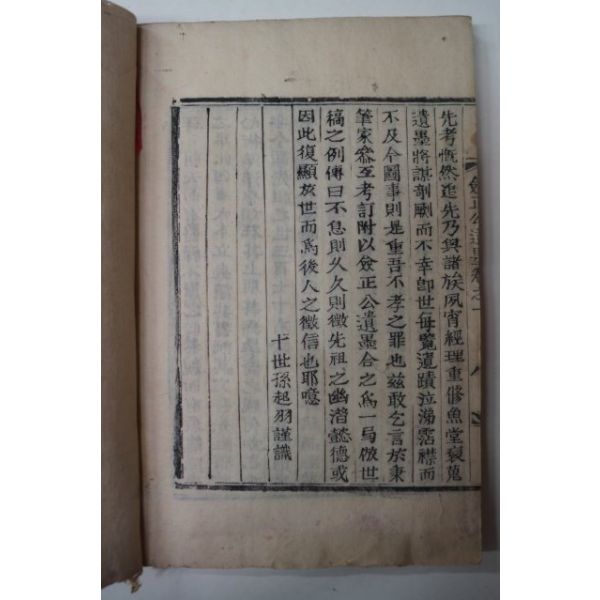 先考慨然追先乃與諸族夙宵經理重修魚堂裒蒐
遺墨將謀剞劂而不幸卽世每覽遺蹟泣涕霑襟而
不及今圖事則是重吾不孝之罪也玆敢乞言於秉
筆家叅互考訂附以僉正公遺墨合之爲一局倣世
稿之例傳曰不息則久久則徵先祖之幽潛懿德或
因此復顯於世而爲後人之徵信也耶噫
十世孫起羽謹識